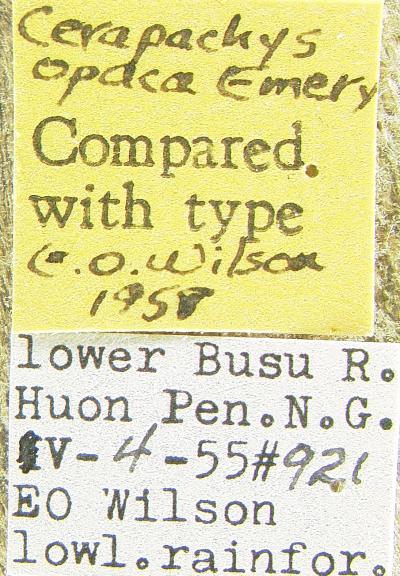 Cerapachys
opaca Emery
Compared
with type
E.O. Wilson
1958
lower Busu R.
Huon Pen.N.G.
V-4-55#921
EO Wilson
lowl.rainfor.